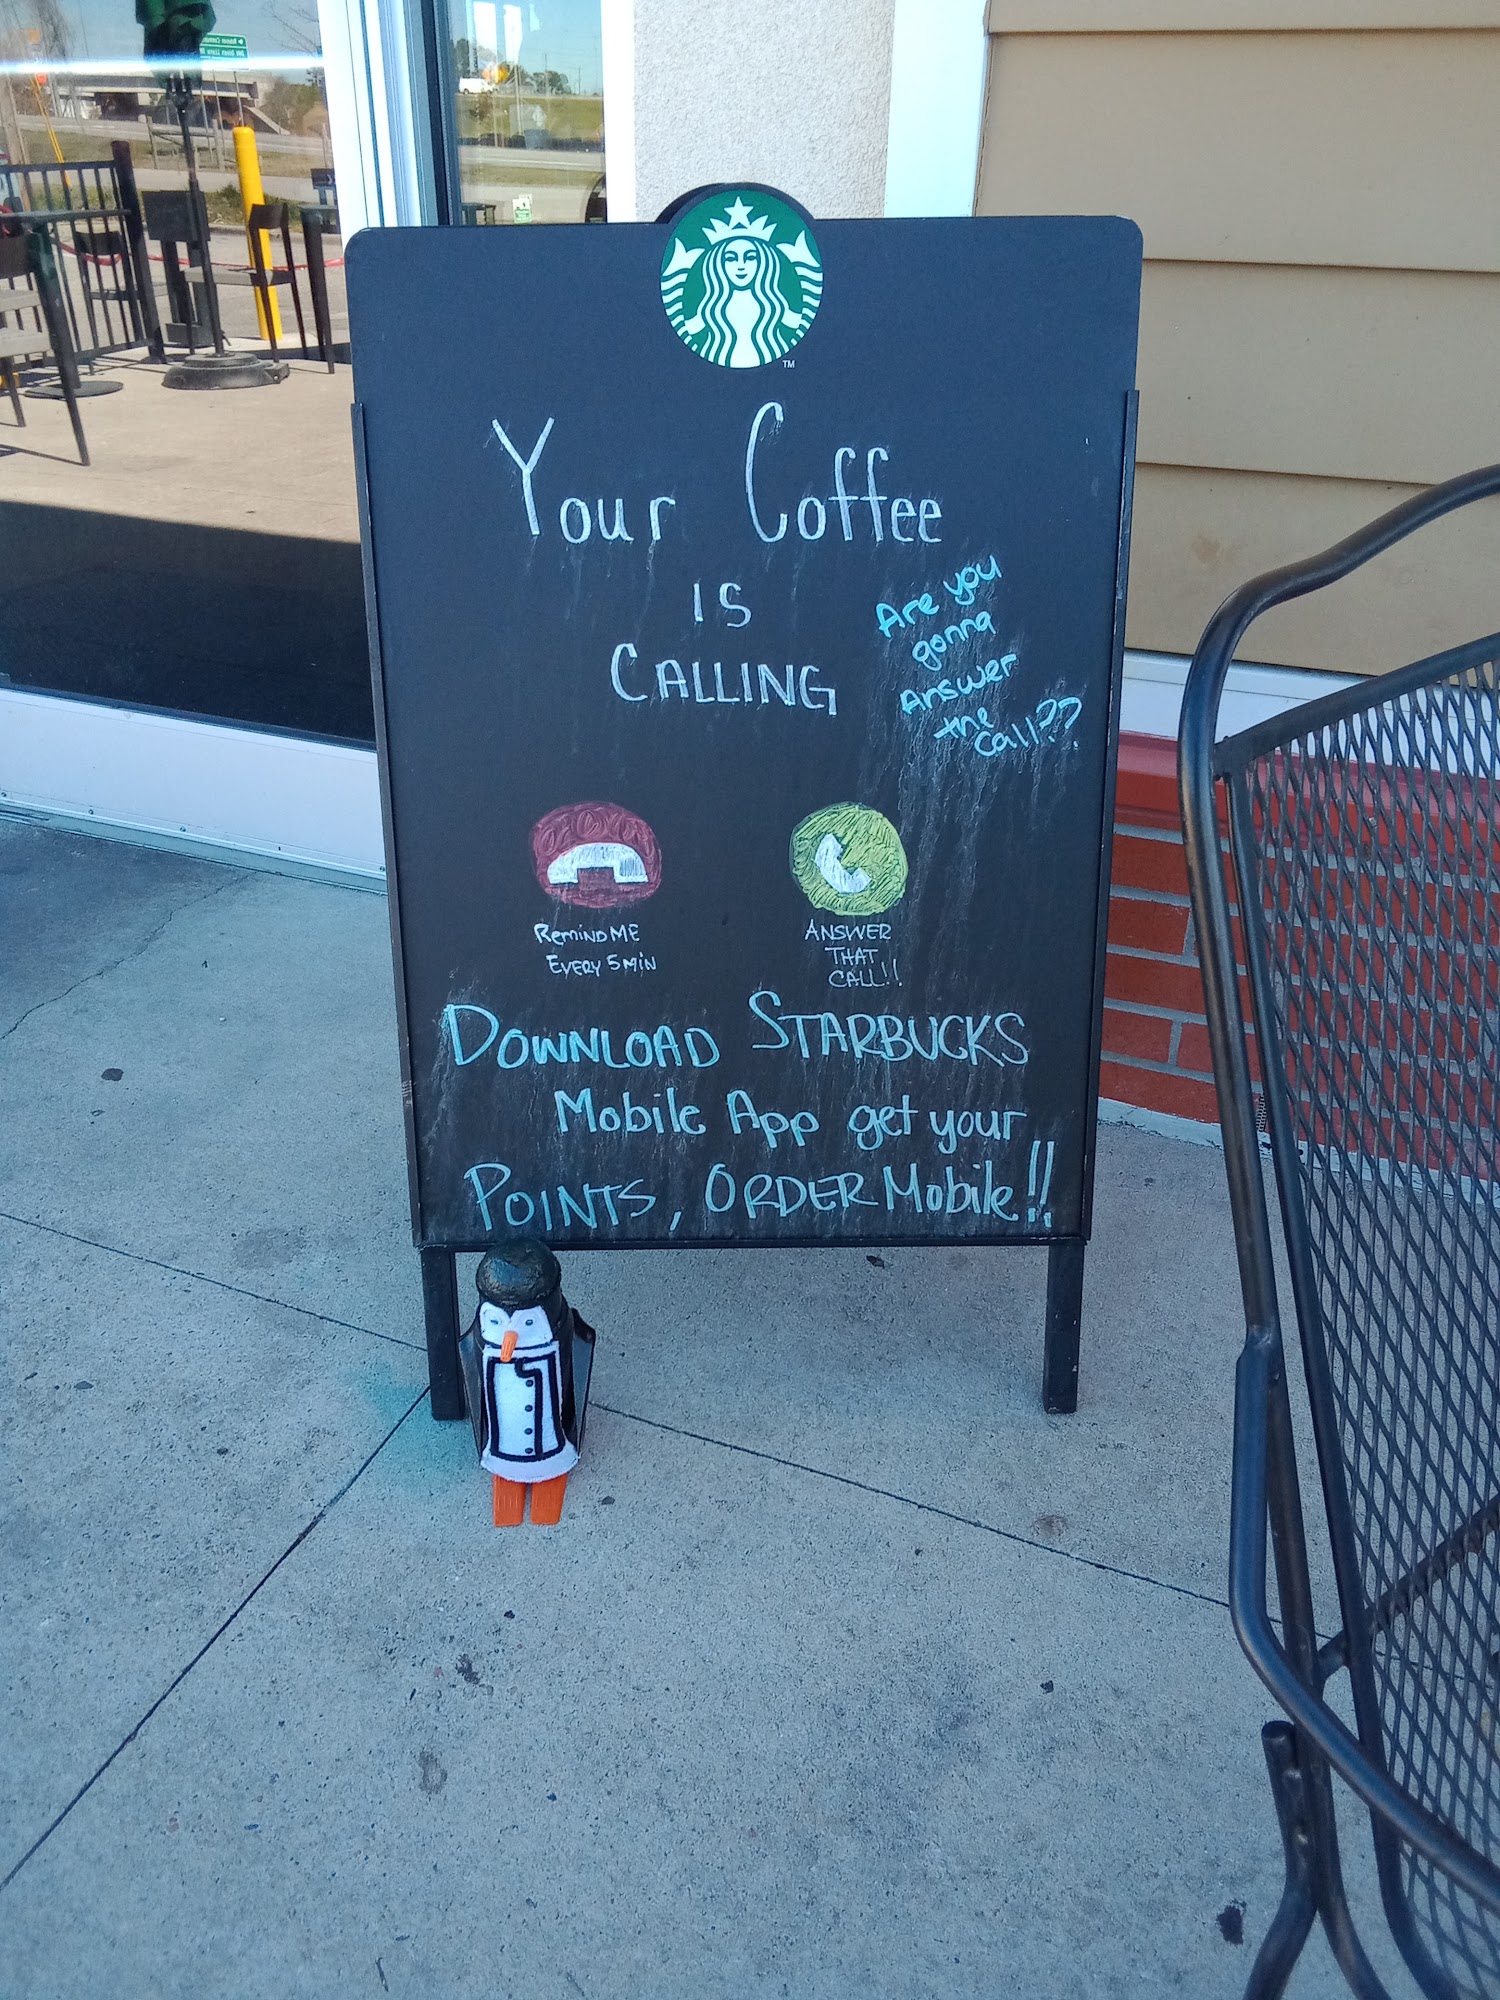 TM
Your Coffee
is
CALLING
Are you
gonna
Answer
the
call??
REMIND ME
EVERY 5 MIN
ANSWER
THAT
CALL!!
DOWNLOAD STARBUCKS
Mobile App get your
POINTS, ORDER Mobile!!